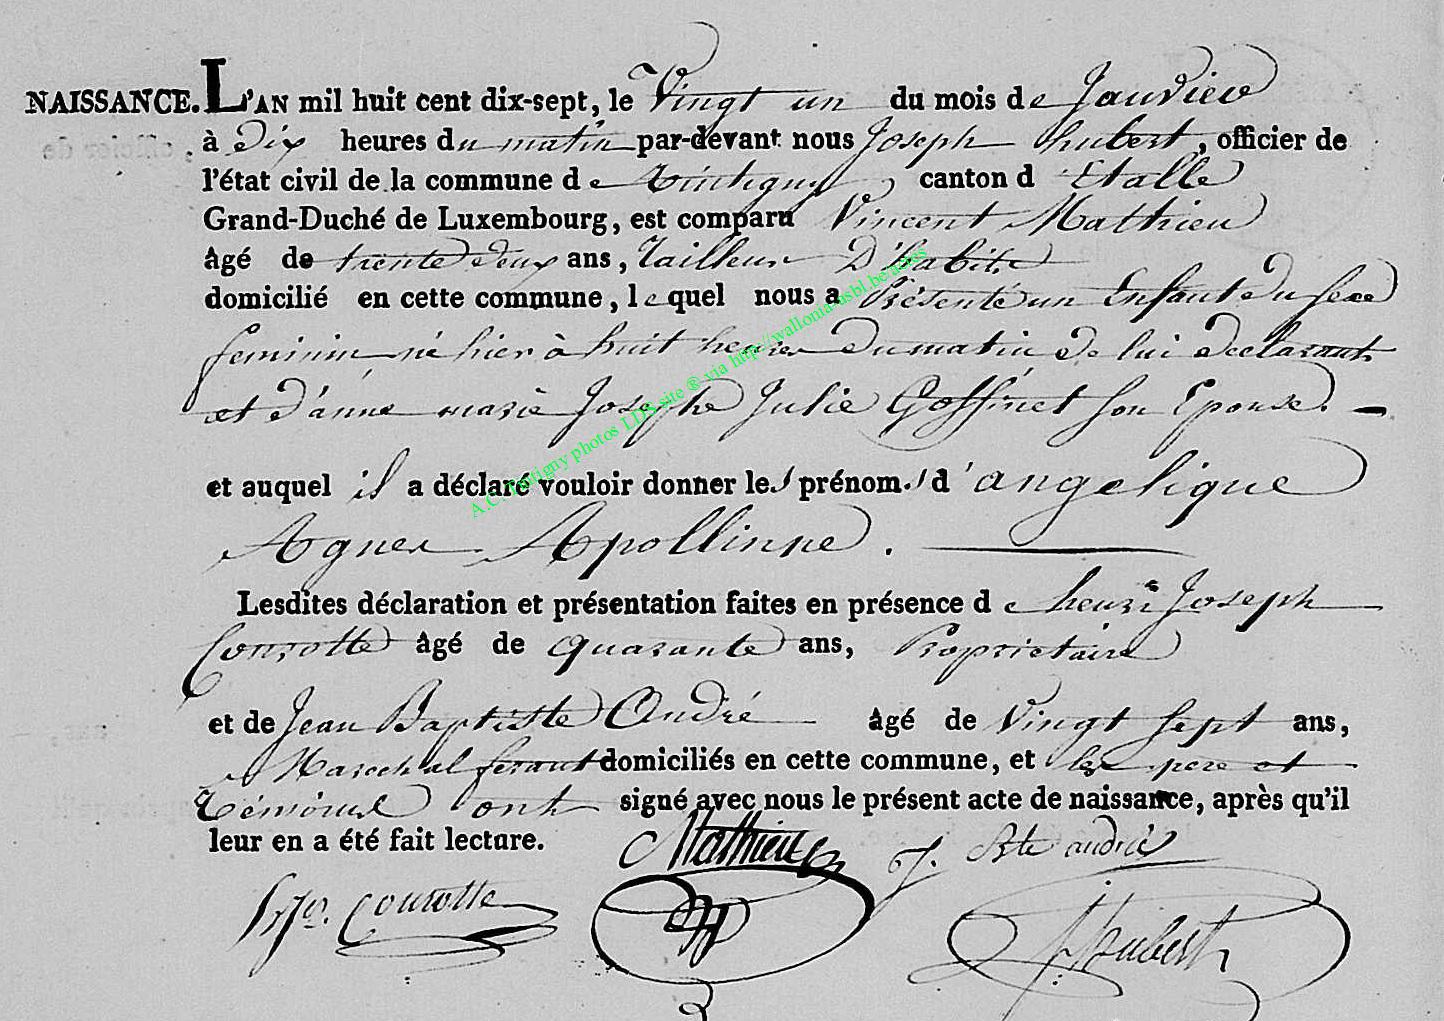 NAISSANCE. L'AN mil huit cent dix-sept, le Vingt un du mois de Janvier
à Dix heures du matin par-devant nous Joseph hubert, officier de
l'état civil de la commune de tintigny, canton d Etalle
Grand-Duché de Luxembourg, est comparu Vincent Mathieu
âgé de trente deux ans, Tailleur D'habits
domicilié en cette commune, lequel nous a Présenté un Enfant du sexe
feminin né hier à huit heures du matin de lui declarant
et d'anne marie Josephe Julie Goffinet son Epouse. —
et auquel il a déclaré vouloir donner les prénoms d'angelique
Agnes Apollinne.
Lesdites déclaration et présentation faites en présence de henri Joseph
Courotte âgé de quarante ans, Proprietaire
et de Jean Baptiste André âgé de Vingt sept ans,
Marechal ferant domiciliés en cette commune, et les pere et
témoins ont signé avec nous le présent acte de naissance, après qu'il
leur en a été fait lecture.
Mathieu J. Bte andré
courotte
Hubert
A.C. Tintigny photos LDS site ® via http://wallonia-asbl.be/actes